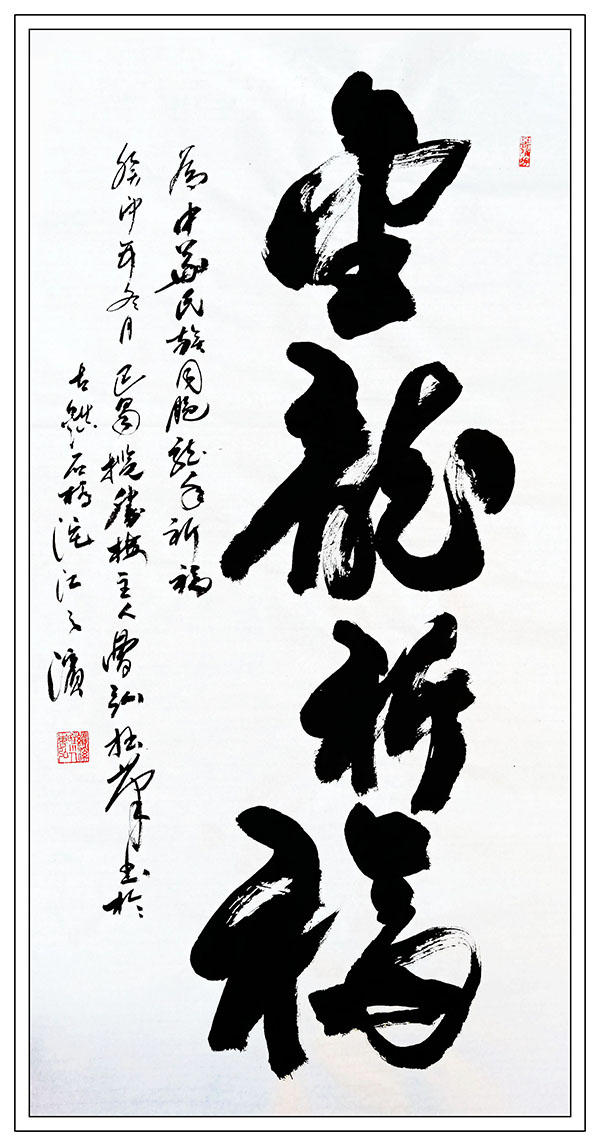 龍祈福
為中華民族同胞龍年祈福
癸卯年冬月巴蜀攬勝樓主人曾弘拙筆书於
古石橋沱江之濱